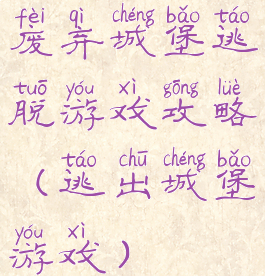 fèi qì chéng bǎo táo
废弃城堡逃
tuō yóu xì gōng lüè
脱游戏攻略
táo chū chéng bǎo
（逃出城堡
yóu xì
游戏）